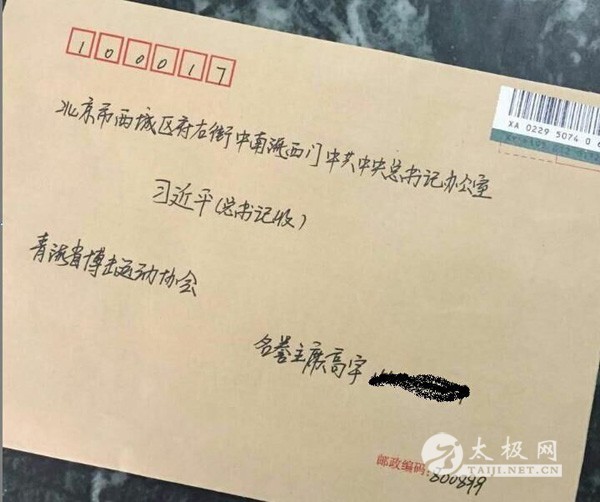 100017
XA 0229 5074 0 6
北京市西城区府右街中南海西门中共中央总书记办公室
习近平(总书记收)
青海省博击运动协会
名誉主席高宇
邮政编码:
800899
太极网
TAIJI.NET.CN